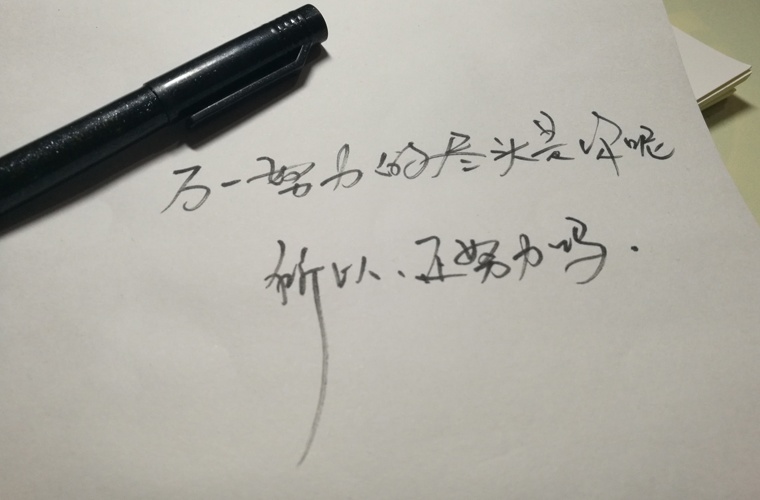 万一努力的尽头是你呢
所以、还努力吗.